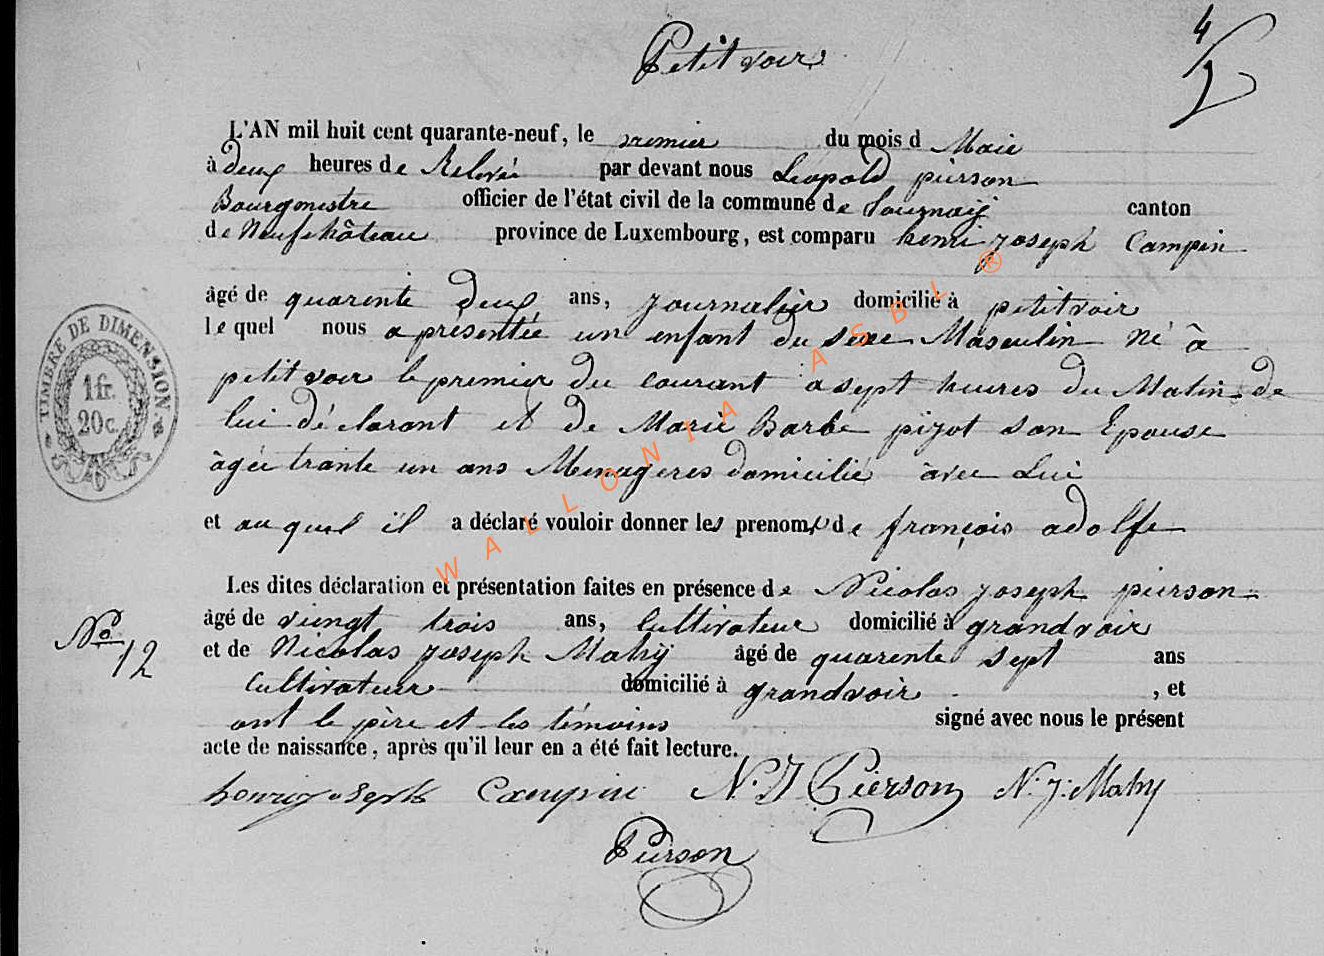 Petit voir
4
L'AN mil huit cent quarante-neuf, le premier du mois d Maie
à deux heures de Relevé par devant nous Leopold pierson
Bourgmestre officier de l'état civil de la commune de tournaij canton
de Neufchâteau province de Luxembourg, est comparu henri joseph Campin
âgé de quarente deux ans, journalier domicilié à petitvoir
lequel nous a présentée un enfant du sexe Masculin né à
petitvoir le premier du courant a sept heures du Matin de
lui déclarant et de Marie Barbe pijot son Epouse
âgée trante un ans Menageres domicilié avec Lui
et auquel il a déclaré vouloir donner les prenoms de françois adolfe
Les dites déclaration et présentation faites en présence de Nicolas joseph pierson
âgé de vieingt trois ans, Cultivateur domicilié à grandvoir
et de Nicolas joseph Mahy âgé de quarente sept ans
Cultivateur domicilié à grandvoir , et
ont le père et les témoins signé avec nous le présent
acte de naissance, après qu'il leur en a été fait lecture.
henri joseph Campin N. J Pierson N. J. Mahy
Pierson
No 12
TIMBRE DE DIMENSION
1 fr.
20 c.
WALLONIA ASBL ®